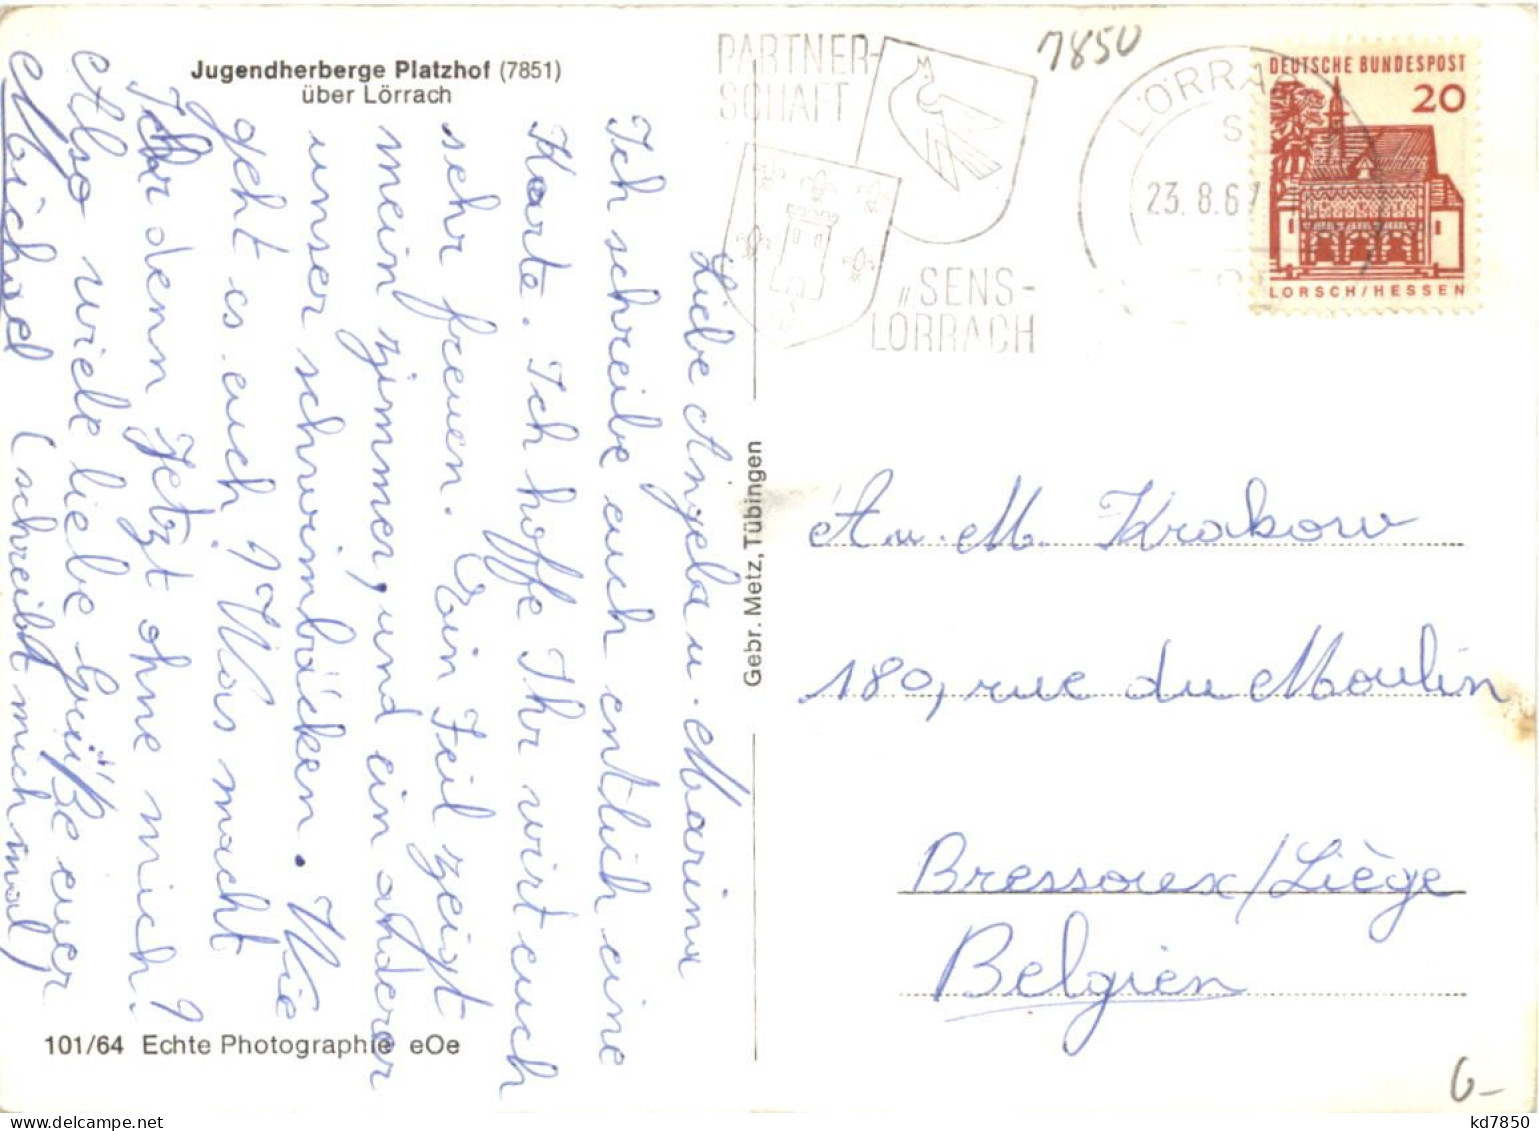 Jugendherberge Platzhof (7851)
über Lörrach
Liebe Angela u. Marina
Ich schreibe euch entlich eine
Karte. Ich hoffe Ihr wirt euch
sehr freuen. Ein Teil zeigt
mein zimmer, und ein anderer
unser schwimbäcken. Wie
geht es euch? Was macht
Ihr denn Jetzt ohne mich?
Also viele liebe Grüße euer
Michael (schreibt mich mal)
101/64 Echte Photographie eOe
Gebr. Metz, Tübingen
PARTNER-
SCHAFT
„SENS-
LÖRRACH
7850
LÖRRA
23.8.67
DEUTSCHE BUNDESPOST
20
LORSCH/HESSEN
A u. M. Krakow
189, rue du Moulin
Bressoux/Liège
Belgien
6-
kd7850